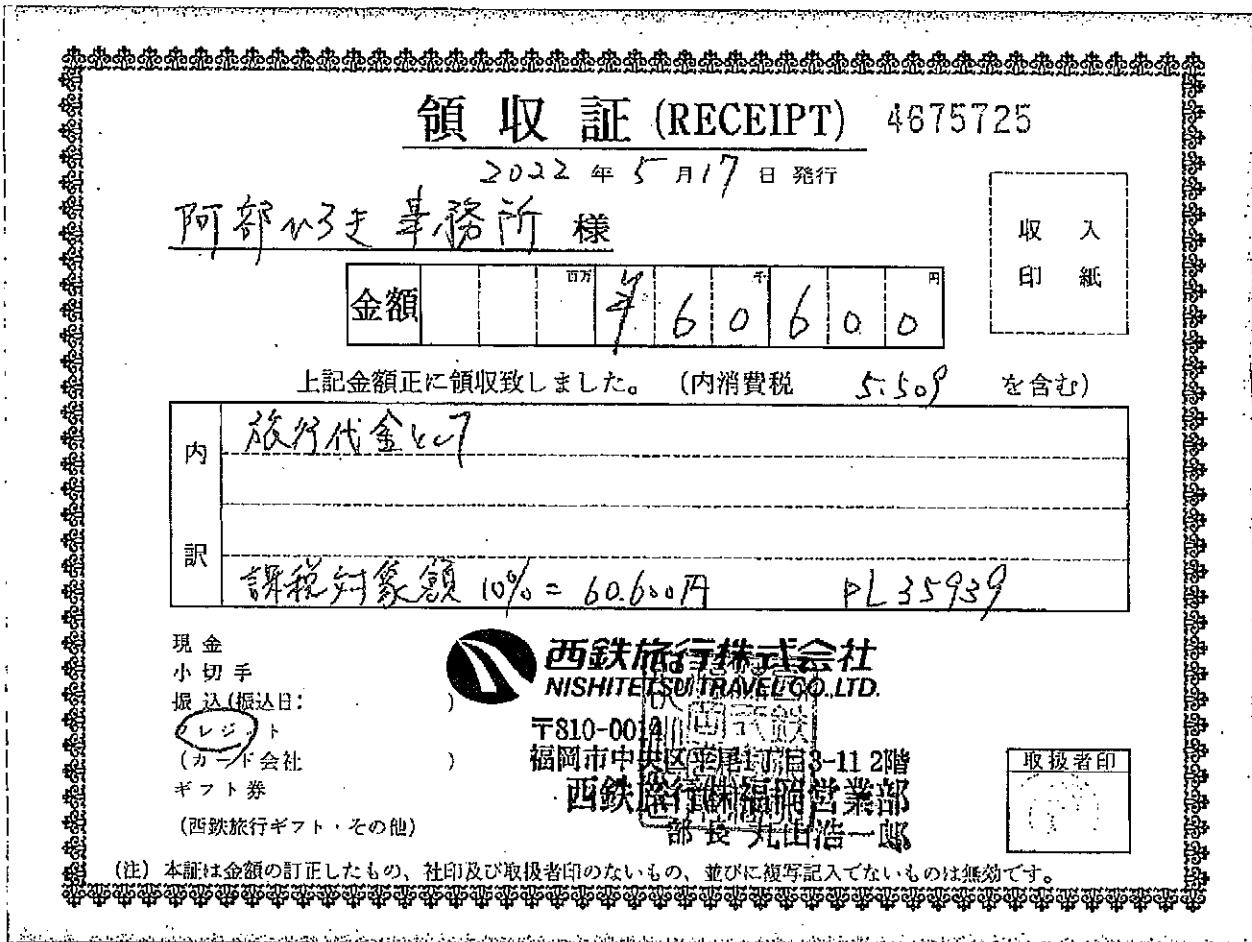 領収証 (RECEIPT) 4675725
2022年5月17日発行
阿部ひろき事務所 様
収入
印紙
金額 百万 千 円 ¥60600
上記金額正に領収致しました。 (内消費税 5.509 を含む)
内訳
旅行代金として
課税対象額 10% = 60.600円 PL35939
現金
小切手
振込(振込日: )
クレジット
(カード会社 )
ギフト券
(西鉄旅行ギフト・その他)
西鉄旅行株式会社
NISHITETSU TRAVEL CO.,LTD.
〒810-0014
福岡市中央区平尾1丁目3-11 2階
西鉄旅行㈱福岡営業部
部長 丸山浩一郎
取扱者印
(注) 本証は金額の訂正したもの、社印及び取扱者印のないもの、並びに複写記入でないものは無効です。